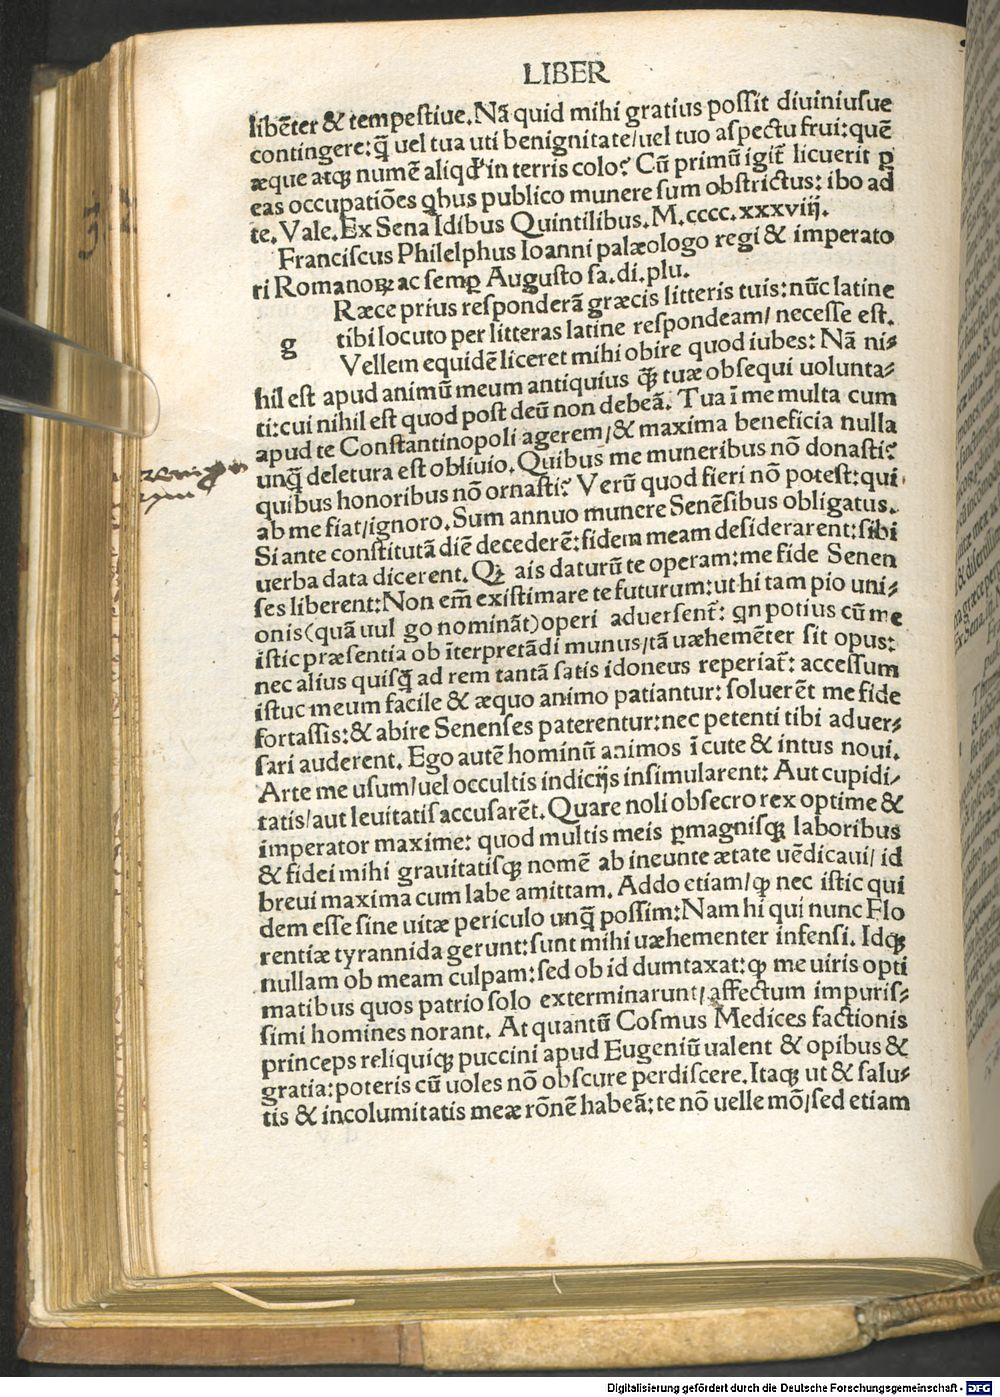 LIBER
libēter & tempeſtiue. Nā quid mihi gratius poſſit diuiniuſue
contingere: q̄ uel tua uti benignitate/uel tuo aſpectu frui: quē
æque atqꝫ numē aliqd' in terris colo? Cū primū igit̄ licuerit ꝑ
eas occupatiōes qbus publico munere ſum obſtrictus: ibo ad
te. Vale. Ex Sena Idibus Quintilibus. M. cccc. xxxviij.
Franciſcus Philelphus Ioanni palæologo regi & imperato
ri Romanoꝝ ac ſemꝑ Auguſto ſa. di. plu.
Ræce prius reſponderā græcis litteris tuis: nūc latine
g tibi locuto per litteras latine reſpondeam/ neceſſe eſt.
Vellem equidē liceret mihi obire quod iubes: Nā ni⸗
hil eſt apud animū meum antiquius q̄ tuæ obſequi uolunta⸗
ti: cui nihil eſt quod poſt deū non debeā. Tua ī me multa cum
apud te Conſtantinopoli agerem/& maxima beneficia nulla
unq̄ deletura eſt obliuio. Quibus me muneribus nō donaſti?
quibus honoribus nō ornaſti? Verū quod fieri nō poteſt: qui
ab me fiat/ignoro. Sum annuo munere Senēſibus obligatus.
Si ante conſtitutā diē decederē: fidem meam deſiderarent: ſibi
uerba data dicerent. Qꝫ ais daturū te operam: me fide Senen
ſes liberent: Non em̄ exiſtimare te futurum: ut hi tam pio uni⸗
onis (quā uul go nomināt) operi aduerſent̄: qn potius cū me
iſtic præſentia ob īterpretādi munus/tā uæhemēter ſit opus:
nec alius quiſq̄ ad rem tantā ſatis idoneus reperiat̄: acceſſum
iſtuc meum facile & æquo animo patiantur: ſoluerēt me fide
fortaſſis: & abire Senenſes paterentur: nec petenti tibi aduer⸗
ſari auderent. Ego autē hominū animos ī cute & intus noui.
Arte me uſum/uel occultis indicijs inſimularent: Aut cupidi⸗
tatis/aut leuitatiſ accuſarēt. Quare noli obſecro rex optime &
imperator maxime: quod multis meis ꝑmagniſqꝫ laboribus
& fidei mihi grauitatiſqꝫ nomē ab ineunte ætate uēdicaui/ id
breui maxima cum labe amittam. Addo etiam/ꝙ nec iſtic qui
dem eſſe ſine uitæ periculo unq̄ poſſim: Nam hi qui nunc Flo
rentiæ tyrannida gerunt: ſunt mihi uæhementer infenſi. Idqꝫ
nullam ob meam culpam: ſed ob id dumtaxat: ꝙ me uiris opti
matibus quos patrio ſolo exterminarunt/affectum impuriſ⸗
ſimi homines norant. At quantū Coſmus Medices factionis
princeps reliquiqꝫ puccini apud Eugeniū ualent & opibus &
gratia: poteris cū uoles nō obſcure perdiſcere. Itaqꝫ ut & ſalu⸗
tis & incolumitatis meæ rōnē habeā: te nō uelle mō/ſed etiam
Digitalisierung gefördert durch die Deutsche Forschungsgemeinschaft - DFG